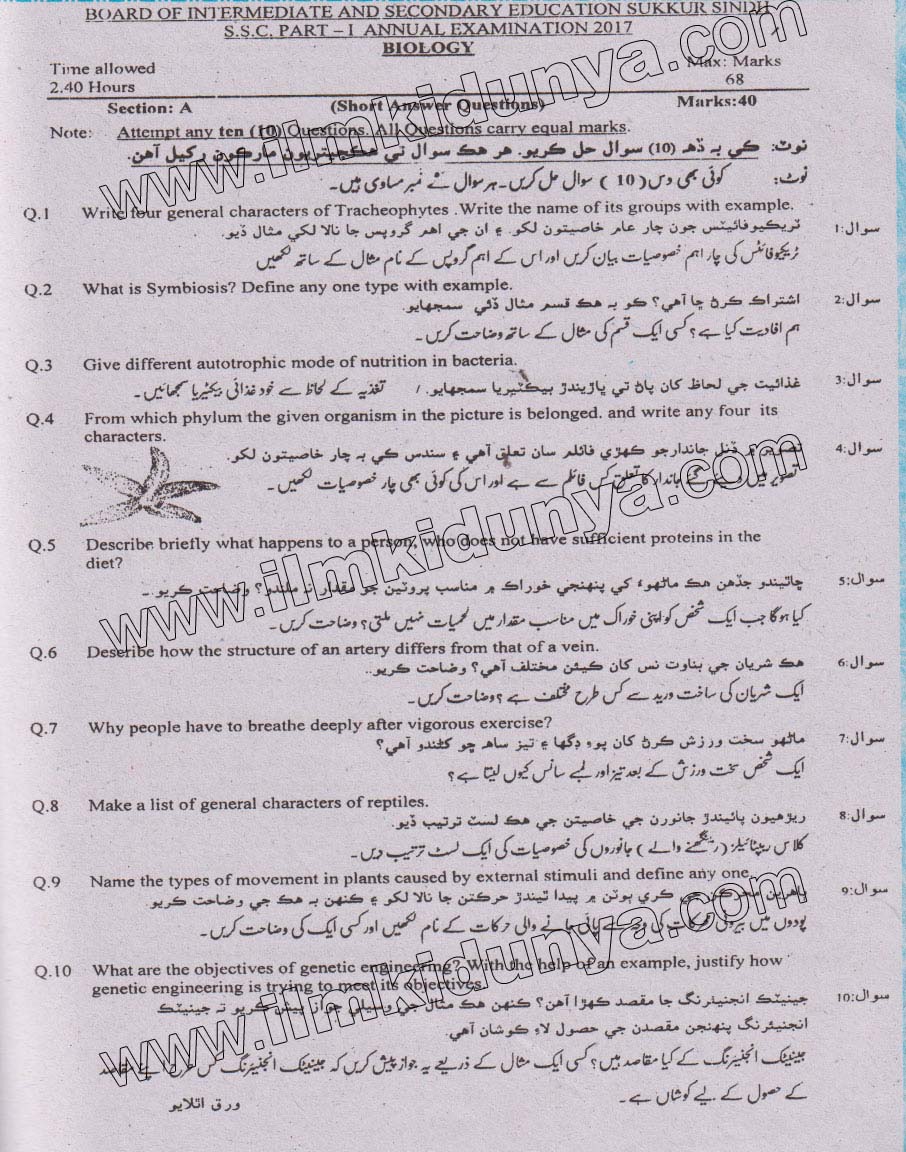 BOARD OF INTERMEDIATE AND SECONDARY EDUCATION SUKKUR SINDH
S.S.C. PART – I ANNUAL EXAMINATION 2017
BIOLOGY
Time allowed
2.40 Hours
Max: Marks
68
Section: A (Short Answer Questions) Marks:40
Note: Attempt any ten (10) Questions. All Questions carry equal marks.
نوٽ: ڪي به ڏهه (10) سوال حل ڪريو. هر هڪ سوال تي هڪجيتريون مارڪون رکيل آهن.
نوٹ: کوئی بھی دس ( 10 ) سوال حل کریں۔ ہر سوال کے نمبر مساوی ہیں۔
Q.1 Write four general characters of Tracheophytes .Write the name of its groups with example.
سوال:1 ٽريڪيوفائيٽس جون چار عام خاصيتون لکو. ۽ ان جي اهم گروپس جا نالا لکي مثال ڏيو.
ٹریکیوفائٹس کی چار اہم خصوصیات بیان کریں اور اس کے اہم گروپس کے نام مثال کے ساتھ لکھیں
Q.2 What is Symbiosis? Define any one type with example.
سوال:2 اشتراڪ ڪرڻ ڇا آهي؟ ڪو به هڪ قسم مثال ڏئي سمجهايو.
ہم افادیت کیا ہے؟ کسی ایک قسم کی مثال کے ساتھ وضاحت کریں۔
Q.3 Give different autotrophic mode of nutrition in bacteria.
سوال:3 غذائيت جي لحاظ کان پاڻ تي پاڙيندڙ بيڪٽيريا سمجهايو. / تغذیہ کے لحاظ سے خود غذائی بیکٹیریا سمجھائیں۔
Q.4 From which phylum the given organism in the picture is belonged. and write any four its
characters.
سوال:4 ڏنل جاندار جو ڪهڙي فائلم سان تعلق آهي ۽ سندس ڪي به چار خاصيتون لکو.
تصویر میں گئے جاندار کا تعلق کس فائلم سے ہے اور اس کی کوئی بھی چار خصوصیات لکھیں۔
Q.5 Describe briefly what happens to a person, who does not have sufficient proteins in the
diet?
سوال:5 ڇا ٿيندو جڏهن هڪ ماڻهوءَ کي پنهنجي خوراڪ ۾ مناسب پروٽين جو مقدار نه ملندو؟ وضاحت ڪريو.
کیا ہوگا جب ایک شخص کو اپنی خوراک میں مناسب مقدار میں لحمیات نہیں ملتی؟ وضاحت کریں۔
Q.6 Describe how the structure of an artery differs from that of a vein.
سوال:6 هڪ شريان جي بناوت نس کان ڪيئن مختلف آهي؟ وضاحت ڪريو..
ایک شریان کی ساخت ورید سے کس طرح مختلف ہے؟ وضاحت کریں۔
Q.7 Why people have to breathe deeply after vigorous exercise?
سوال:7 ماڻهو سخت ورزش ڪرڻ کان پوءِ ڊگها ۽ تيز ساهه ڇو کڻندو آهي؟
ایک شخص سخت ورزش کے بعد تیز اور لمبے سانس کیوں لیتا ہے؟
Q.8 Make a list of general characters of reptiles.
سوال:8 ريڙهيون پائيندڙ جانورن جي خاصيتن جي هڪ لسٽ ترتيب ڏيو.
کلاس ریپٹائیلز (رینگھنے والے) جانوروں کی خصوصیات کی ایک لسٹ ترتیب دیں۔
Q.9 Name the types of movement in plants caused by external stimuli and define any one.
سوال:9 ٻاهرين جي ڪري ٻوٽن ۾ پيدا ٿيندڙ حرڪتن جا نالا لکو ۽ ڪنهن به هڪ جي وضاحت ڪريو.
پودوں میں بیرونی کی وجہ سے پائی جانے والی حرکات کے نام لکھیں اور کسی ایک کی وضاحت کریں۔
Q.10 What are the objectives of genetic engineering? With the help of an example, justify how
genetic engineering is trying to meet its objectives.
سوال:10 جينيٽڪ انجنيئرنگ جا مقصد ڪهڙا آهن؟ ڪنهن هڪ مثال جي وسيلي جواز پيش ڪريو ته جينيٽڪ
انجنيئرنگ پنهنجن مقصدن جي حصول لاءِ ڪوشان آهي.
جینیٹک انجنیئرنگ کے کیا مقاصد ہیں؟ کسی ایک مثال کے ذریعے یہ جواز پیش کریں کہ جینیٹک انجنیئرنگ کس طرح اپنے مقاصد
کے حصول کے لیے کوشاں ہے۔
ورق اٿلايو
www.ilmkidunya.com
www.ilmkidunya.com
www.ilmkidunya.com